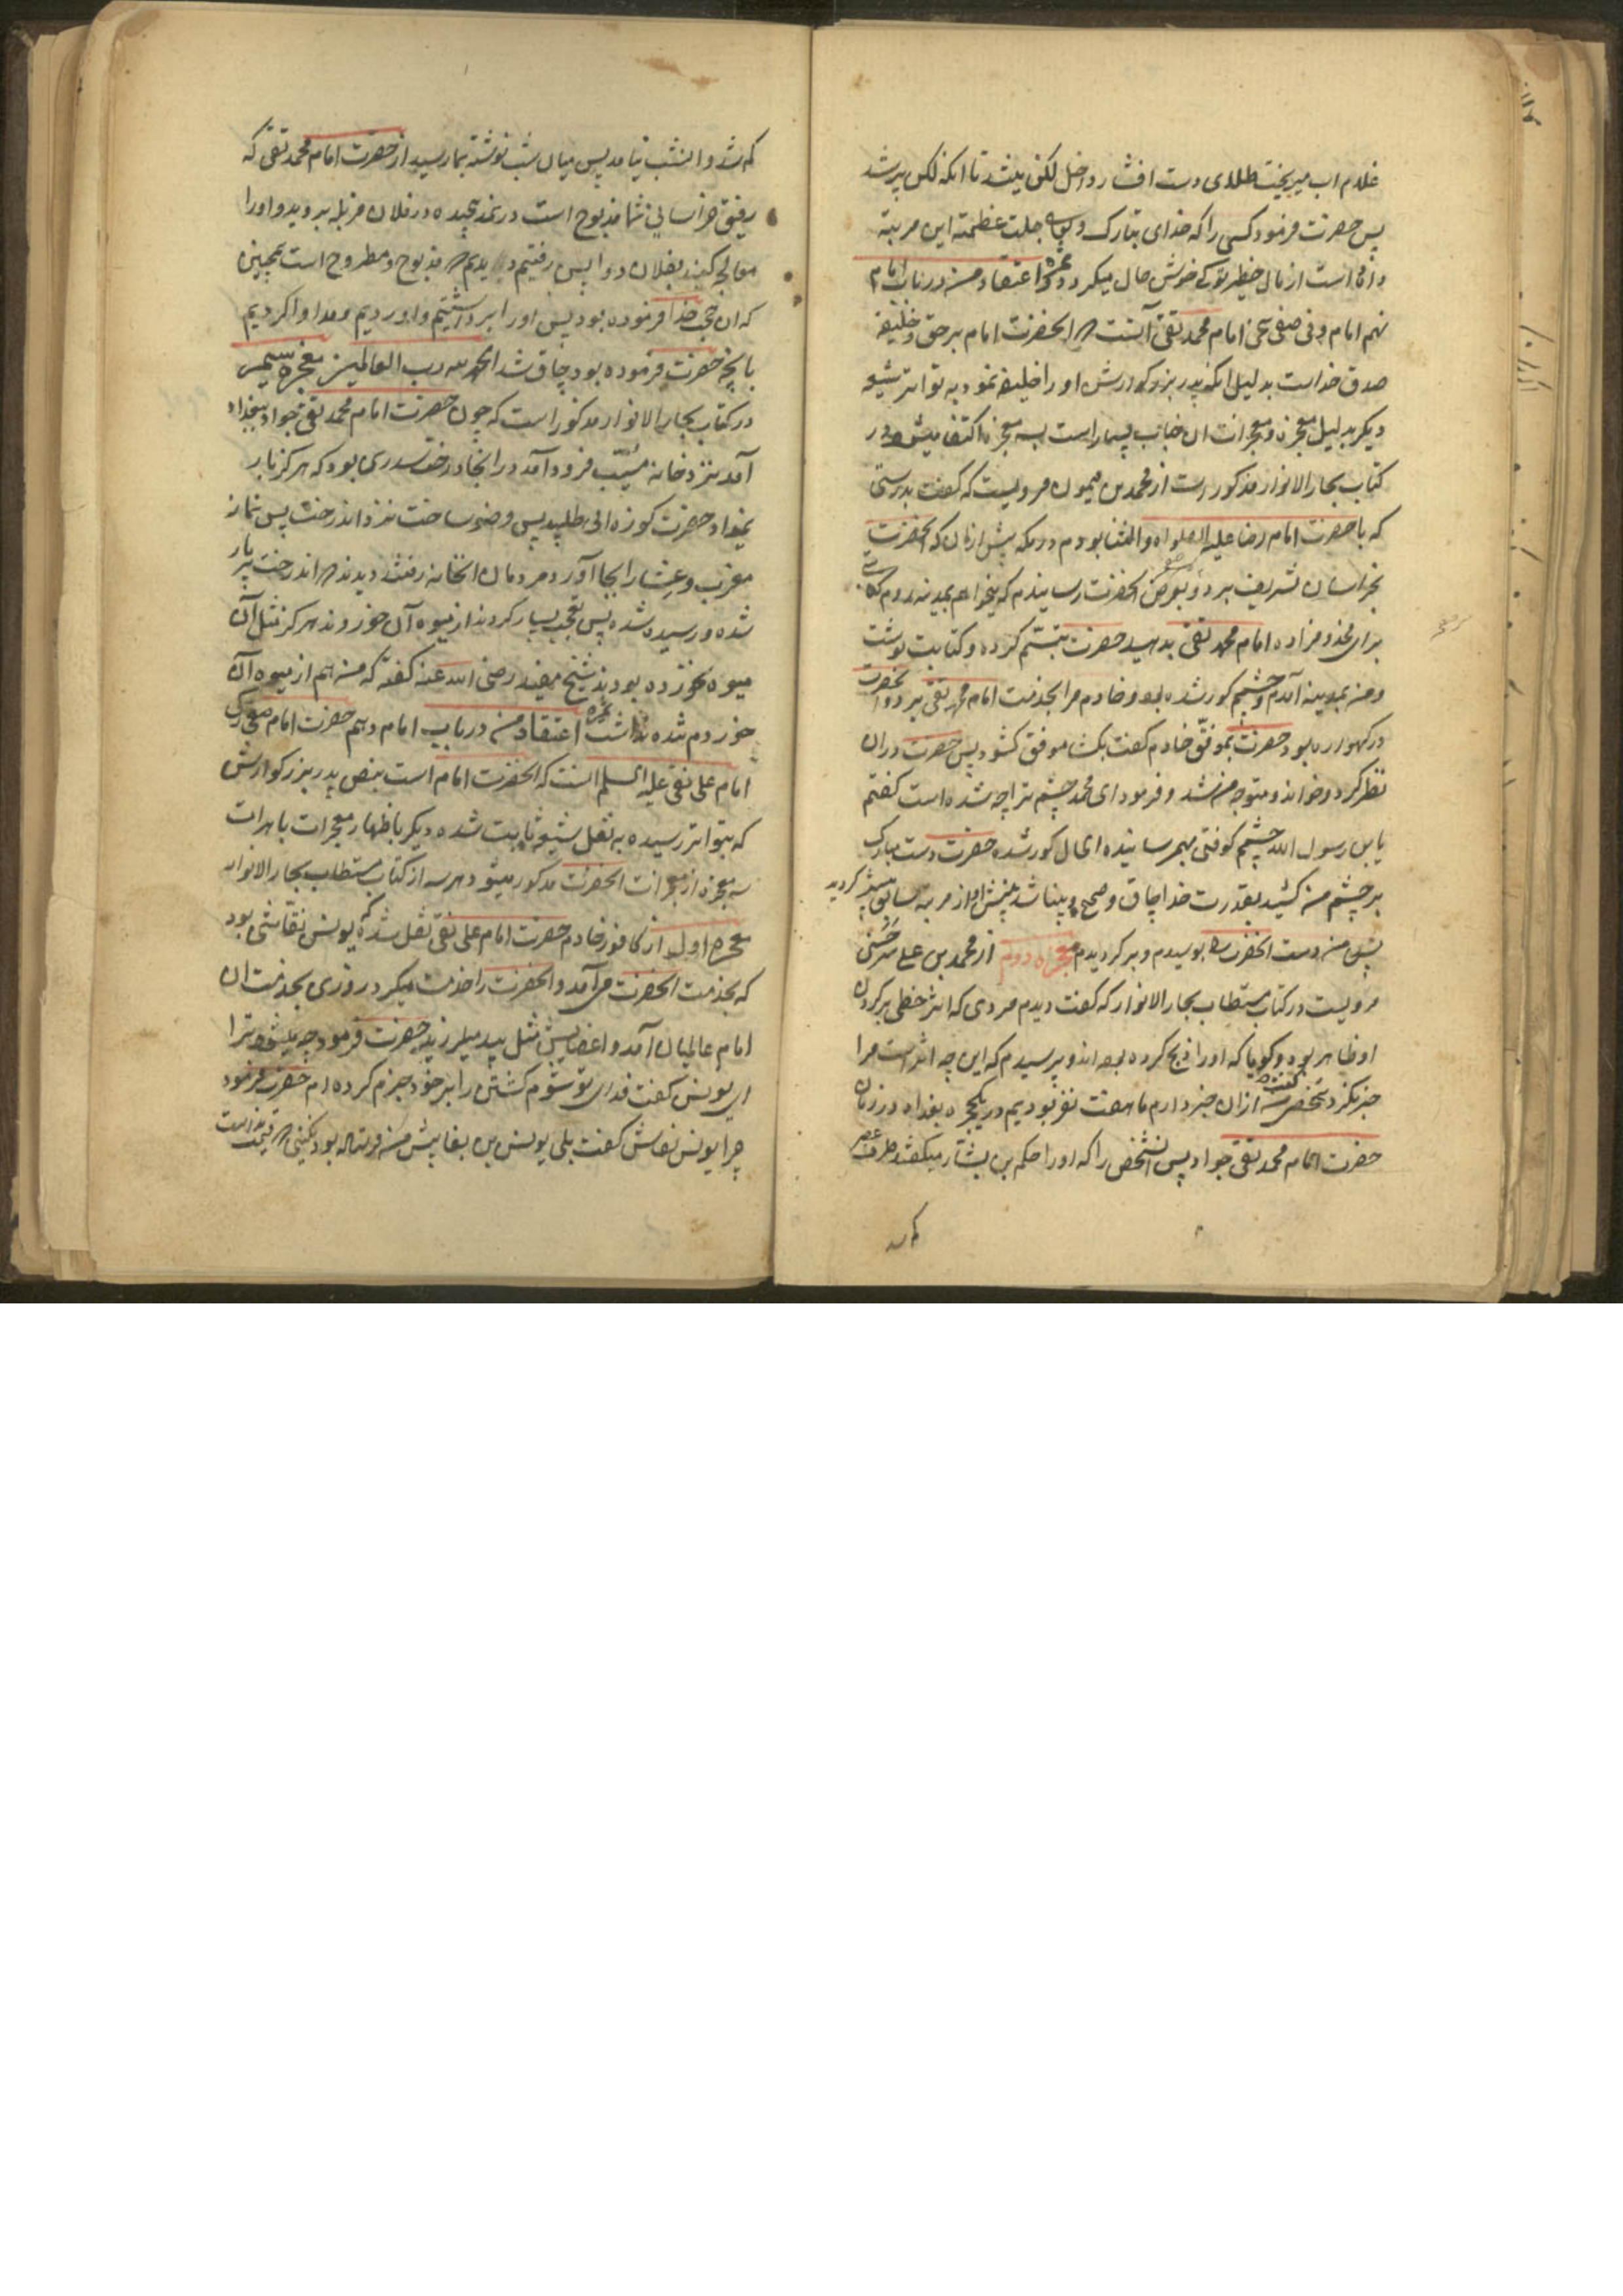 غلام اب میریخت طلای دست افشار داخل لکن میشد تا انکه لکن پر شد
پس حضرت فرمود کسی را که خدای تبارک و جلت عظمته این مرتبه
داده است از مال خوش حال میکردد اعتقاد من در باب امام
نهم امام محمد تقی آنست که انحضرت امام بر حق و خلیفه
صدق خداست بدلیل انکه پدر بزرکوارش او را خلیفه نمود به تواتر شیعه
دیکر بدلیل معجزه و معجزات ان جناب بسیار است بسه معجزه اکتفا میشود در
کتاب بحار الانوار مذکور است از محمد بن میمون مرویست که کفت بدرستی
که با حضرت امام رضا علیه الصلواه والثنا بودم در مکه پیش از ان که انحضرت
بخراسان تشریف برد و بعرض انحضرت رسانیدم که میخواهم بمدینه روم
برای مخدومزاده امام محمد تقی بدهید حضرت تبسم کرده و کتابت نوشت
و من بمدینه آمدم و چشمم کور شده بود و خادم مرا بخدمت امام محمد تقی برد و انحضرت
در کهواره بود حضرت بموفق خادم کفت بکشا موفق کشود پس حضرت در ان
نظر کرد و خواند و متوجه من شد و فرمود ای محمد چشم ترا چه شده است کفتم
یابن رسول الله چشمم کوفتی بهمرسانیده الحال کور شده حضرت دست مبارک
بر چشم من کشید بقدرت خدا چاق و صحیح و بینا شد بینش او از مرتبه سابق بیشتر کردید
پس من دست انحضرت را بوسیدم و برکردیدم معجزه دوم از محمد بن علی
مرویست در کتاب مستطاب بحار الانوار که کفت دیدم مردی که اثر خطی بر کردن
او ظاهر بود و کویا که او را ذبح کرده بودند و پرسیدم که این چه اثر است مرا
خبر نکرد شخصی کفت من از ان خبر دارم ما هفت نفر بودیم در یکحجره بغداد در زمان
حضرت امام محمد تقی جواد پس انشخص را که او را حکم بن بشار میکفتند طرف عصر
کم شد و انشب نیامد پس میان شب نوشته بما رسید از حضرت امام محمد تقی که
رفیق خراسانی شما مذبوح است در نمد پیچیده در فلان مزبله بروید و او را
معالجه کنید بفلان دوا پس رفتیم دیدیم که مذبوح و مطروح است بهمین
که ان حجت خدا فرموده بود پس او را برداشتیم و اوردیم و مداوا کردیم
بانچه حضرت فرموده بود چاق شد الحمد لله رب العالمین معجزه سیم
در کتاب بحار الانوار مذکور است که چون حضرت امام محمد تقی جواد ببغداد
آمد نزد خانه مسیب فرود آمد در انجا درخت سدری بود که هرکز بار
نمیداد حضرت کوزه ابی طلبید پس وضو ساخت نزد اندرخت پس نماز
مغرب و عشا را بجا آورد مردمان انخانه رفتند دیدند که اندرخت پر بار
شده و رسیده شده پس تعجب بسیار کردند از میوه آن خوردند هرکز مثل آن
میوه نخورده بودند شیخ مفید رضی الله عنه کفته که من هم از میوه آن
خوردم نداشت اعتقاد من در باب امام دهم حضرت امام
امام علی نقی علیه السلم انست که انحضرت امام است بنص پدر بزرکوارش
که بتواتر رسیده به نقل شیعه ثابت شده دیکر باظهار معجزات باهرات
سه معجزه از معجزات انحضرت مذکور میشود هر سه از کتاب مستطاب بحار الانوار
معجزه اول از کافور خادم حضرت امام علی نقی نقل شده که یونس نقاشی بود
که بخدمت انحضرت می آمد و انحضرت را خدمت میکرد روزی بخدمت ان
امام عالمیان آمد و اعضایش مثل بید میلرزید حضرت فرمود چه میشود ترا
ای یونس کفت فدای تو شوم کشتن را بر خود جزم کرده ام حضرت فرمود
چرا یونس نقاش کفت بلی یونس بن بغا پیش من فرستاده بود نکینی که قیمت نداشت